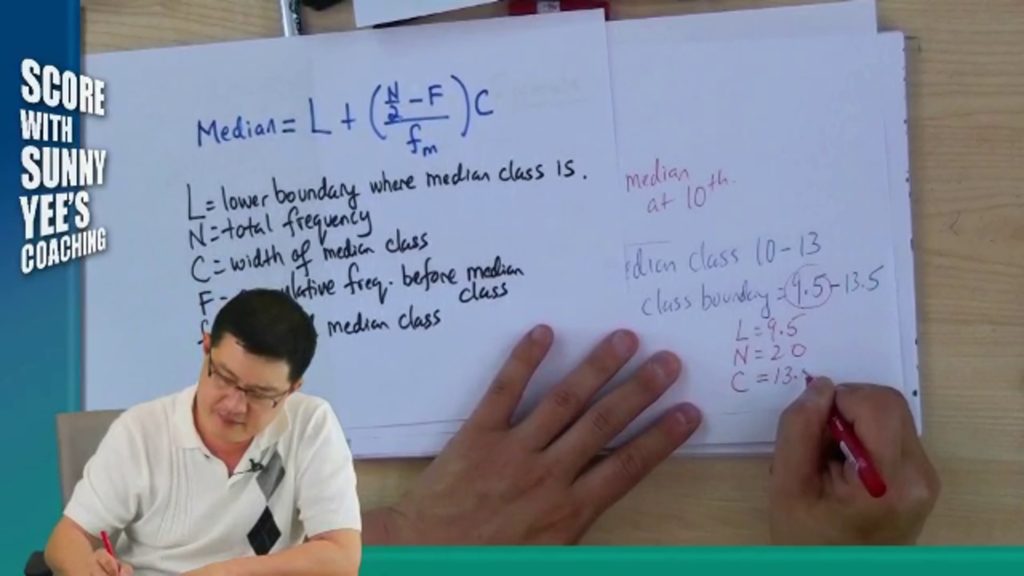 SCORE
WITH
SUNNY
YEE'S
COACHING
Median = L + ( (N/2 - F) / fm ) C
L = lower boundary where median class is.
N = total frequency
C = width of median class
F = freq. before median
class
median class
median
at 10th.
class 10 - 13
class boundary = 9.5 - 13.5
L = 9.5
N = 20
C = 13.